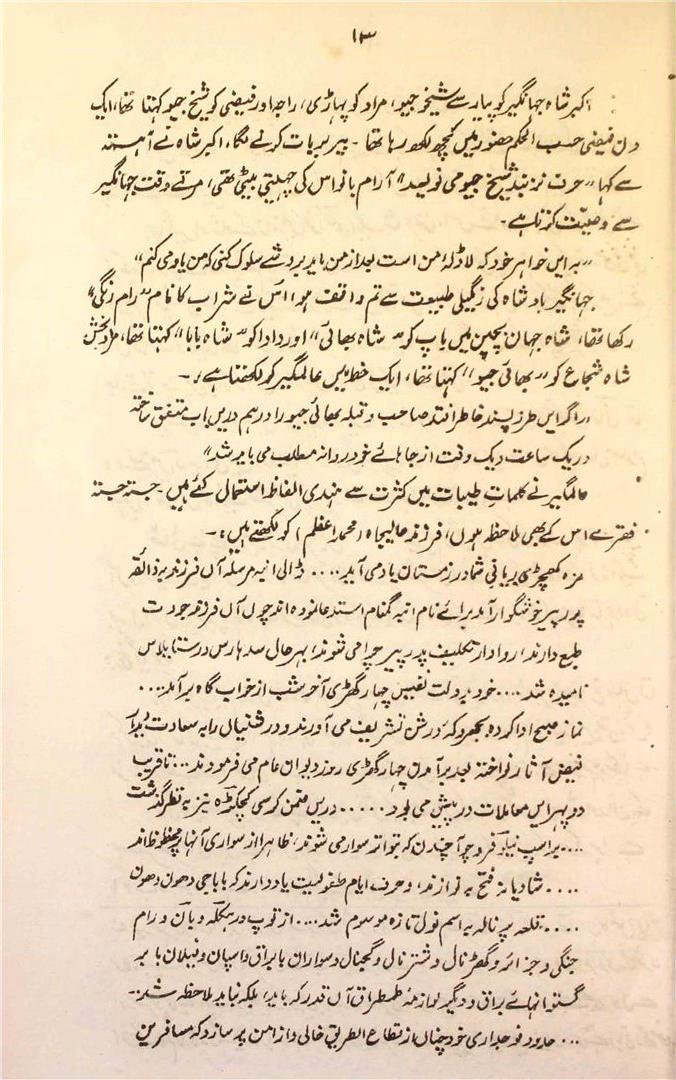 ۱۳
اکبر شاہ جہانگیر کو پیار سے شیخو جیو، مراد کو پہاڑی، راجہ اور فیضی کو شیخ جیو کہتا تھا، ایک
دن فیضی حسب الحکم حضور میں کچھ لکھ رہا تھا۔ بیربر بات کرنے لگا، اکبر شاہ نے آہستہ
سے کہا "حرف نزنید شیخ جیو می نویسد" آرام بانو اس کی چہیتی بیٹی تھی، مرتے وقت جہانگیر
سے وصیّت کرتا ہے۔
"بہ ایں خواہر خود کہ لاڈلۂ من است بعد از من باید بروشے سلوک کنی کہ من با وے می کنم"
جہانگیر بادشاہ کی رنگیلی طبیعت سے تم واقف ہو، اس نے شراب کا نام "رام رنگی"
رکھا تھا، شاہ جہان بچپن میں باپ کو "شاہ بھائی" اور دادا کو "شاہ بابا" کہتا تھا، مراد بخش
شاہ شجاع کو "بھائی جیو" کہتا تھا، ایک خط میں عالمگیر کو لکھتا ہے:۔
"اگر ایں طرز پسند خاطر افتد صاحب و قبلہ بھائی جیو را در ہم دریں باب متفق ساختہ
در یک ساعت و یک وقت از جا ہائے خود روانہ مطلب می باید شد"
عالمگیر نے کلمات طیبات میں کثرت سے ہندی الفاظ استعمال کئے ہیں۔ جستہ جستہ
فقرے اس کے بھی ملاحظہ ہوں، فرزند عالیجاہ (محمد اعظم) کو لکھتے ہیں:۔
مزہ کھچڑی بریانی شما در زمستان یاد می آید .... ڈالی انبہ مرسلہ آں فرزند بذائقہ
پدر پیر خوشگوار آمد برائے نام انبہ گمنام استدعا نمودہ اند چوں آں فرزند جودت
طبع دارند، روادار تکلیف پدر پیر چرا می شوند، بہر حال سدھارس و رسنا بلاس
نامیدہ شد .... خود بدولت نفیس چہار گھڑی آخر شب از خواب گاہ برآمد ...
نماز صبح ادا کردہ بجھروکۂ درشن تشریف می آورند و درشنیان را بہ سعادت دیدار
فیض آثار نواختہ بعد برآمدن چہار گھڑی روز دیوان عام می فرمودند ... تا قریب
دوپہر ایں معاملات در پیش می بود ..... دریں ضمن کرسی کچکوڑہ نیز بہ نظر گذشت
.... بر اسپ نیلہ فر و چوآ چندن کہ بتواتر سوار می شوند، ظاہرا از سواری آنہا محظوظ اند
.... شادیانہ فتح بہ نوازند، و حرف ایام طفولیت یاد دارند کہ باباجی دھون دھون
.... قلعہ پرنالہ بہ اسم نول تازہ موسوم شد .... از توپ و رہکلہ و بان و رام
جنگی و جزائر و گھڑنال و شترنال و گجنال و سواران با یراق و اسپان و فیلان با بر
گستوانہائے براق و دیگر لوازمۂ طمطراق آں قدر کہ باید، بلکہ نباید ملاحظہ شد ...
... حدود فوجداری خود چناں از قطاع الطریق خالی و از امن پر سازد کہ مسافرین